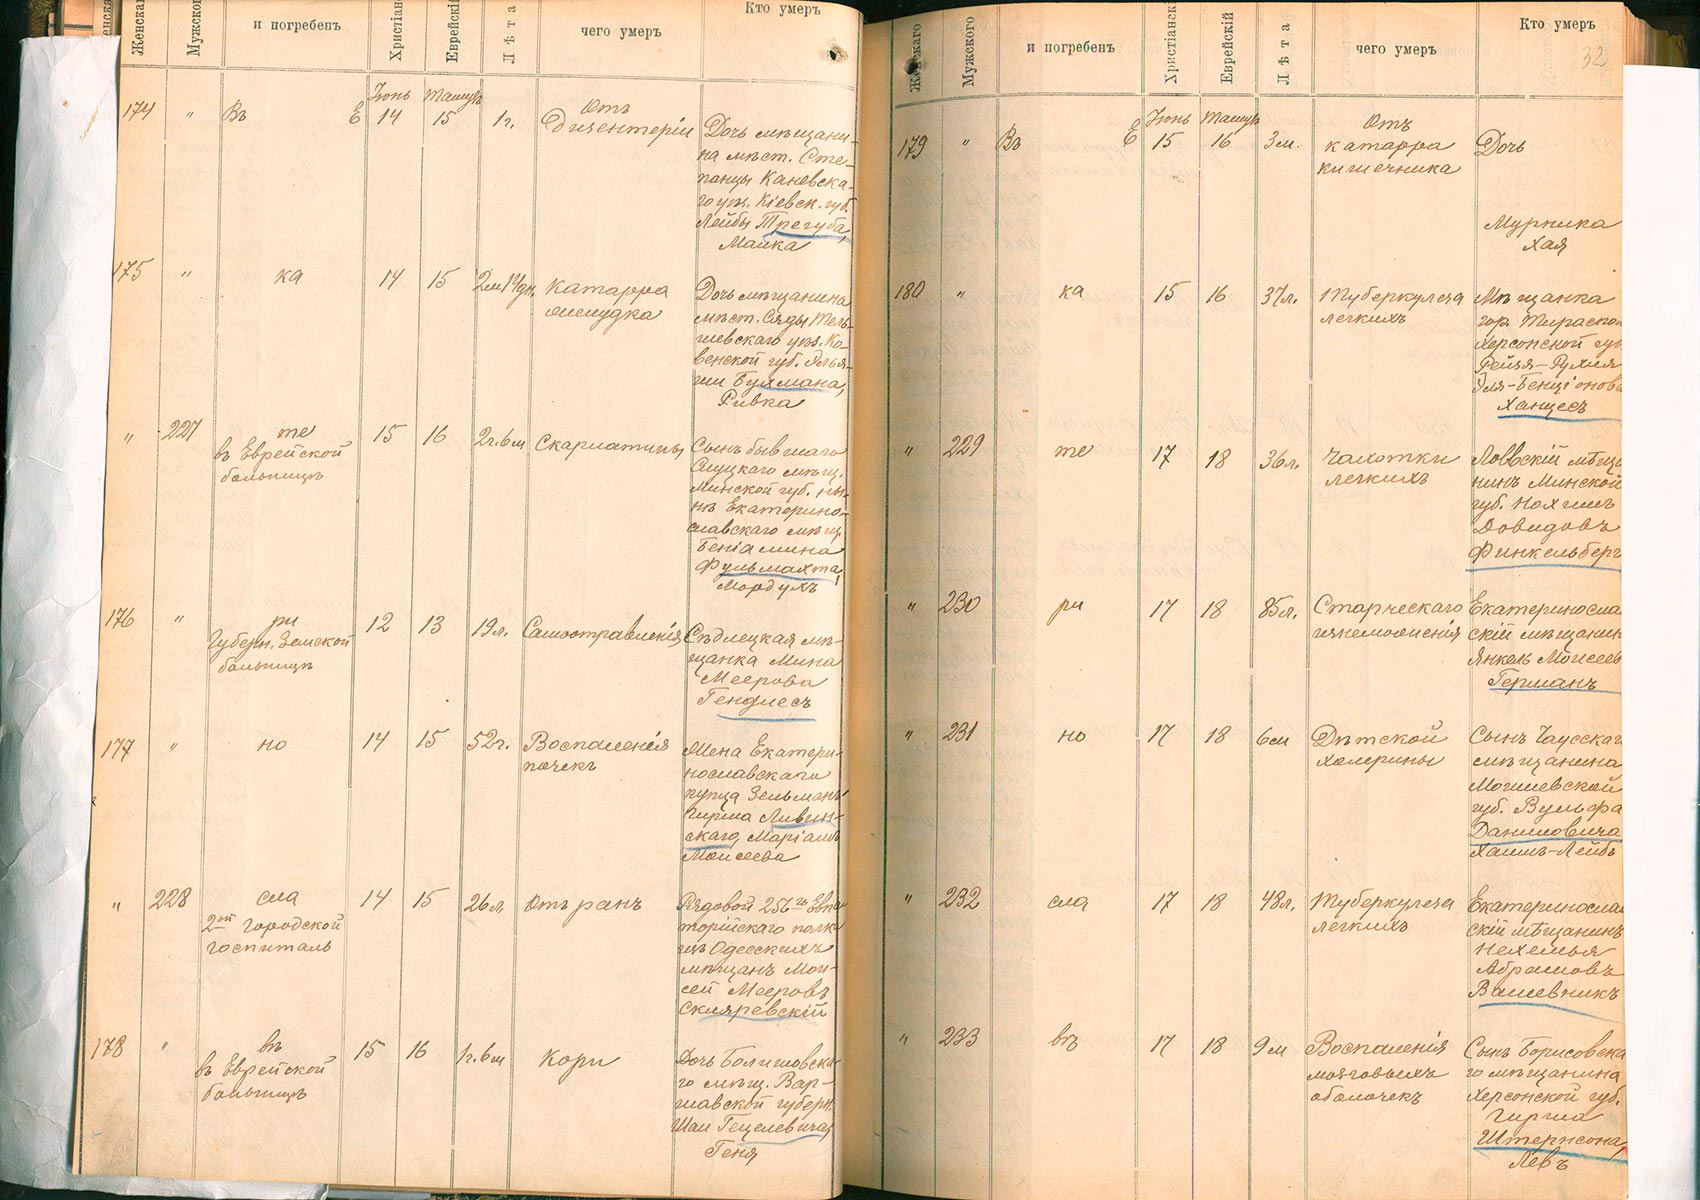 Женска
Мужско
и погребенъ
Христіан
Еврейскі
Лѣта
чего умеръ
Кто умеръ
Іюнь Тамузъ
174 " Въ Е 14 15 1г.
Отъ
Дизентеріи
Дочь мѣщани-
на мѣст. Сте-
панцы Каневска-
го уѣз. Кіевск. губ.
Лейбы Трегуба,
Малка
175 " ка 14 15 2м 14дн.
Катарра
желудка
Дочь мѣщанина
мѣст. Сяды Тель-
шевскаго уѣз. Ко-
венской губ.
Бухмана,
Ривка
" 227 те 15 16 2г. 6м Скарлатины
въ Еврейской
больницѣ
Сынъ бывшаго
Слуцкаго мѣщ.
Минской губ. ны-
нѣ Екатерино-
славскаго мѣщ.
Беніамина
Фульмахта,
Мордухъ
176 " ри 12 13 19л. Самоотравленія
Губерн. Земской
больницѣ
Сѣдлецкая мѣ-
щанка Мина
Меерова
Гендлесъ
177 " но 14 15 52г. Воспаленія
почекъ
Жена Екатери-
нославскаго
купца Зельманъ
Гирша Ливин-
скаго, Маріамъ
Моисеева
" 228 сла 14 15 26л Отъ ранъ
2ой городской
госпиталь
Рядовой 256го Евпа
торійскаго полка
изъ Одесскихъ
мѣщанъ Мои-
сей Мееровъ
Скляревскій
178 " въ 15 16 1г. 6м Кори
въ Еврейской
больницѣ
Дочь Болимовска-
го мѣщ. Вар-
шавской губерн.
Шаи Гецелевича,
Геня
Женскаго
Мужского
и погребенъ
Христіанск
Еврейскій
Лѣта
чего умеръ
Кто умеръ
32
Іюнь Тамузъ
179 " Въ Е 15 16 3м.
Отъ
катарра
кишечника
Дочь
Мурника
Хая
180 " ка 15 16 37л. Туберкулеза
легкихъ
Мѣщанка
гор. Тираспол
Херсонской губ
Рейзя-Рухля
Эля-Бенціонова
Ханцесъ
" 229 те 17 18 36л. Чахотки
легкихъ
Лоевскій мѣща
нинъ Минской
губ. Нахимъ
Довидовъ
Финкельберг
" 230 ри 17 18 85л. Старческаго
изнеможенія
Екатеринослав
скій мѣщанин
Янкель Моисеев
Германъ
" 231 но 17 18 6м Дѣтской
холерины
Сынъ Чаусскаг
мѣщанина
Могилевской
губ. Вульфа
Даниловича
Хаимъ-Лейбъ
" 232 сла 17 18 48л. Туберкулеза
легкихъ
Екатеринослав
скій мѣщанинъ
Нехемья
Абрамовъ
Вишевникъ
" 233 въ 17 18 9м Воспаленія
мозговыхъ
оболочекъ
Сынъ Борисовска
го мѣщанина
Херсонской губ.
Гирша
Штернсона,
Левъ